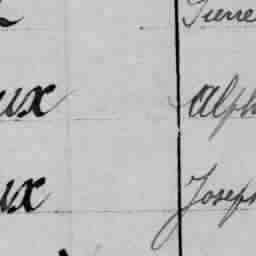 Pierre
ux Alph
ux Joseph